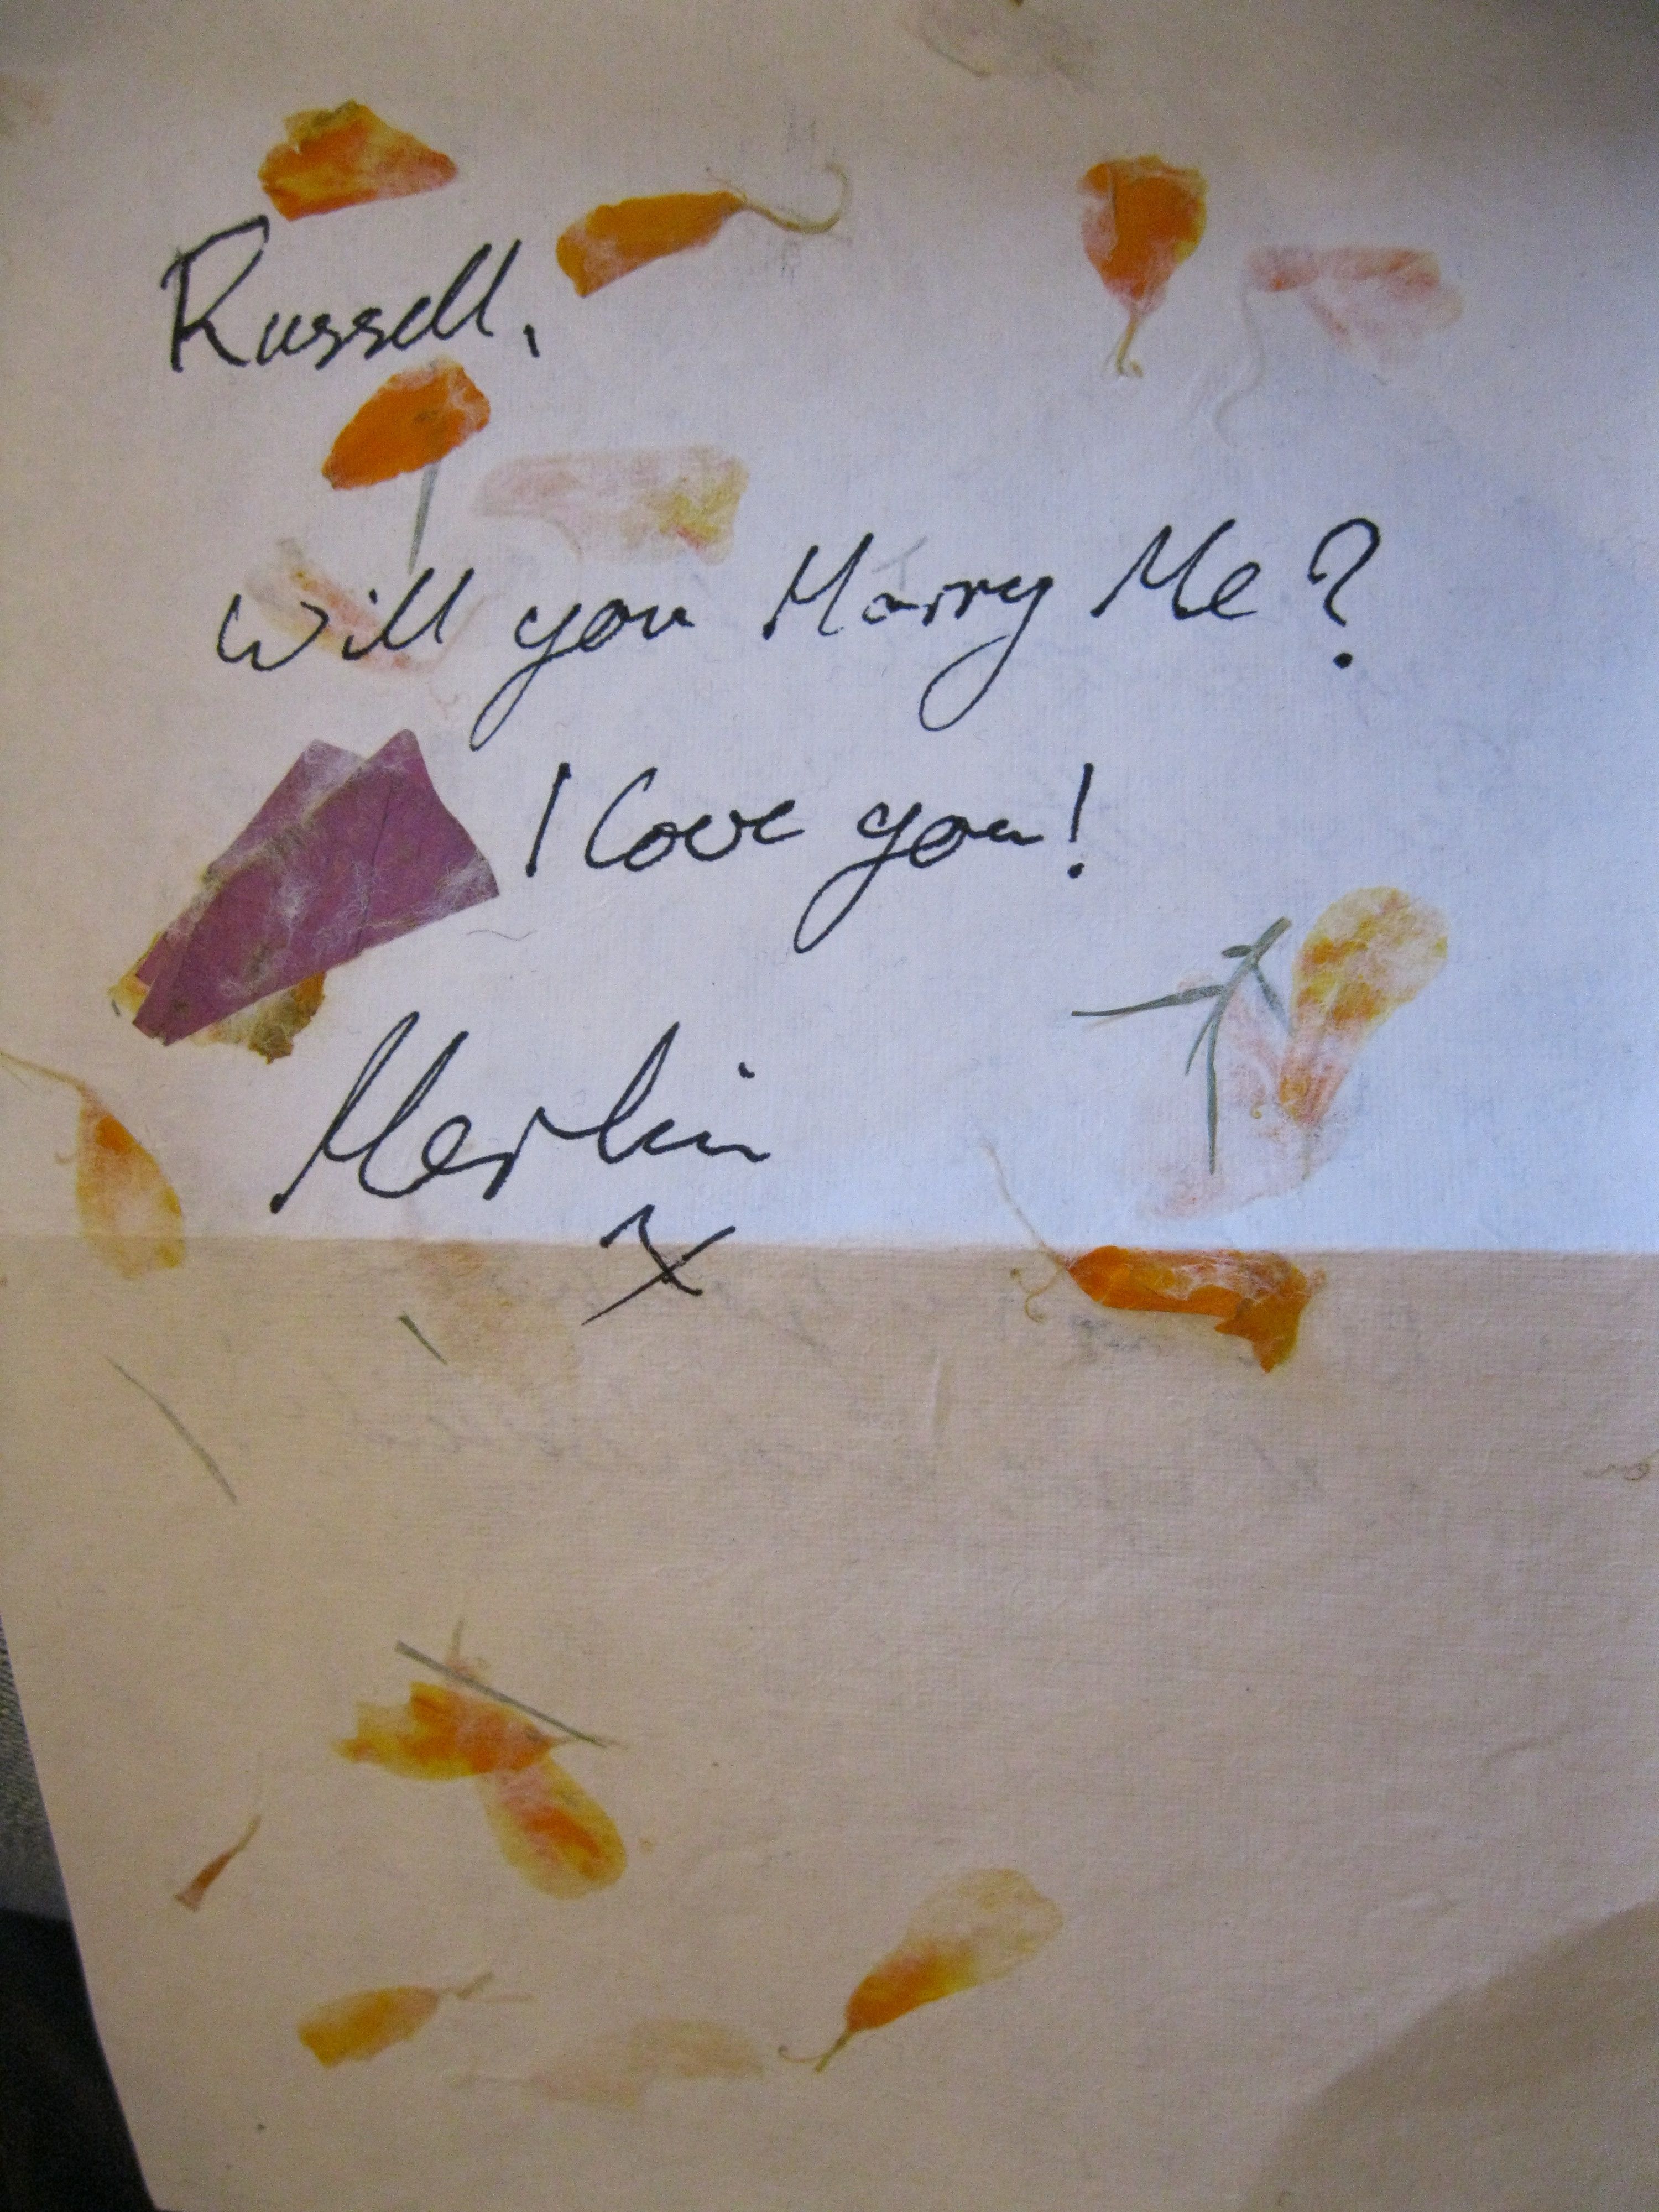 Russell,
Will you Marry Me?
I love you!
Merlin
X